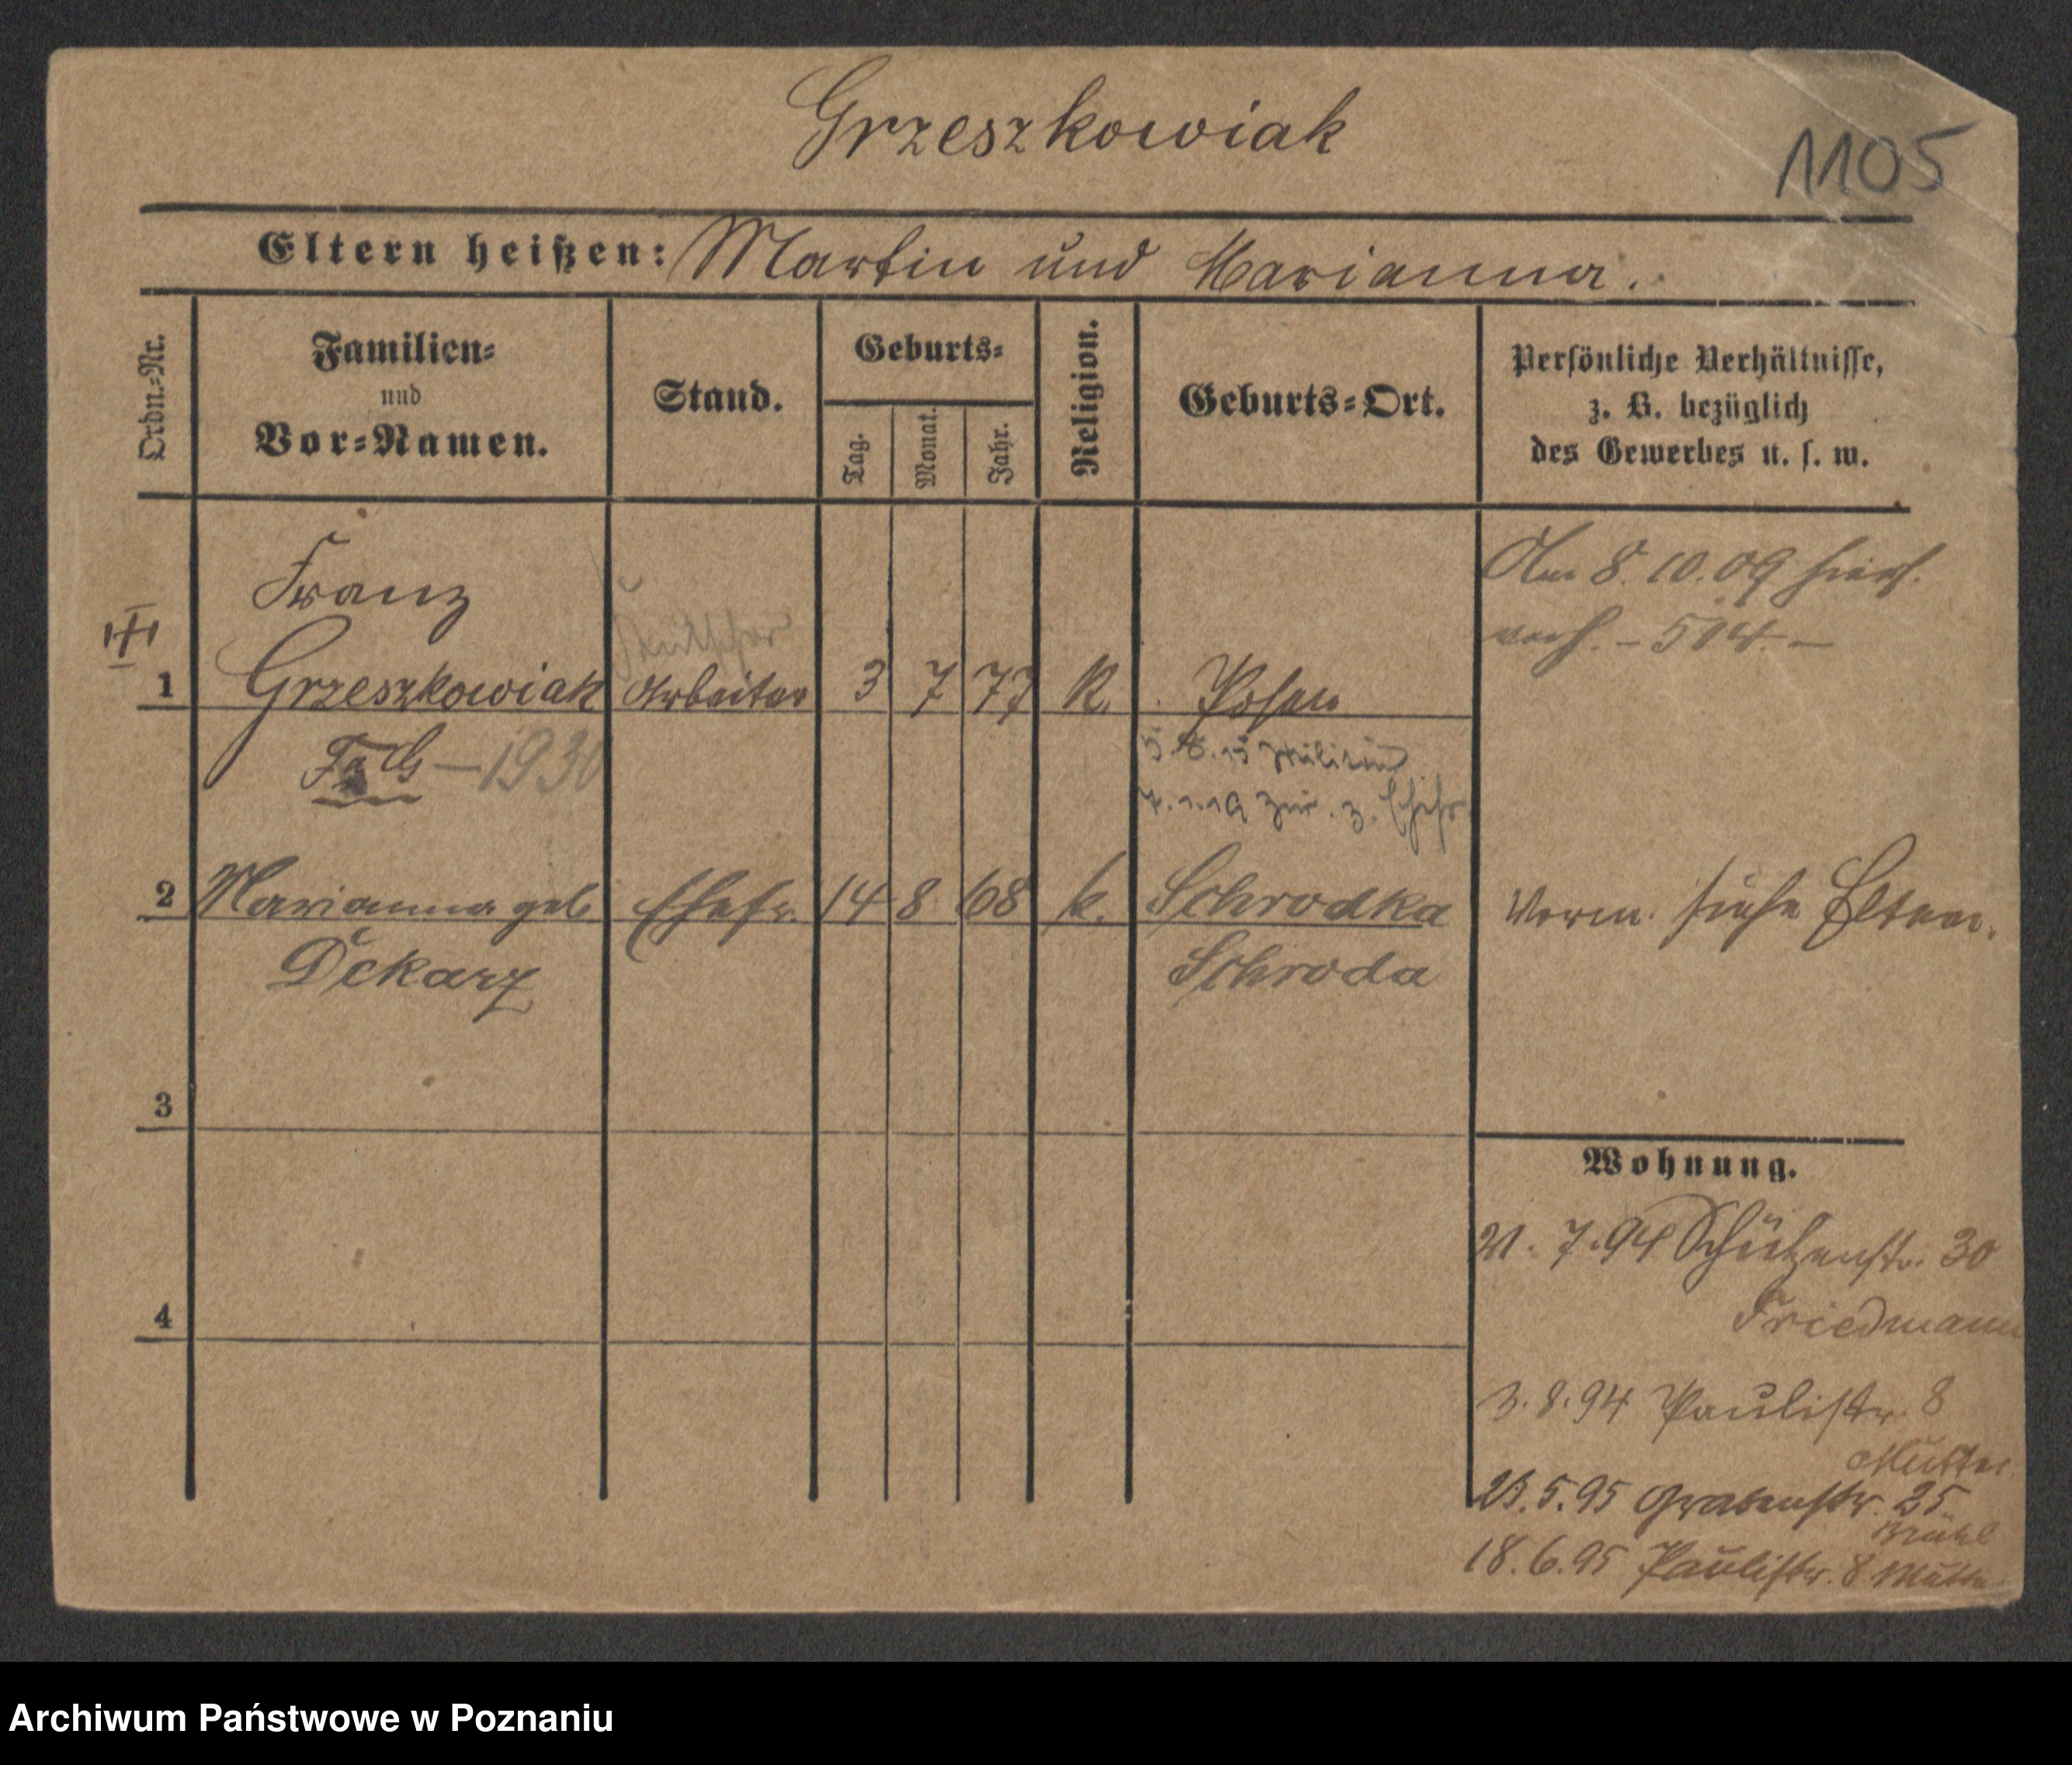 Grzeszkowiak
1105
Eltern heißen: Martin und Marianna.
Ordn.=Nr.
Familien=
und
Vor=Namen.
Stand.
Geburts=
Tag.
Monat.
Jahr.
Religion.
Geburts=Ort.
Persönliche Verhältnisse,
z. B. bezüglich
des Gewerbes u. s. w.
Franz
Kutscher
1 Grzeszkowiak Arbeiter 3 7 77 K. Posen
Am 8.10.09 hier
verh. - 514. -
1930
5.8.15 Militär
1.19 zur. z. Ehefr
2 Marianna geb Ehefr. 14 8 68 k. Schrodka
Verm. siehe Eltern.
Dekarz
Schroda
3
4
Wohnung.
21.7.94 Schützenstr. 30
Friedmann
3.8.94 Paulistr. 8
Mutter
23.5.95 Grabenstr. 25
Brühl
18.6.95 Paulistr. 8 Mutter
Archiwum Państwowe w Poznaniu